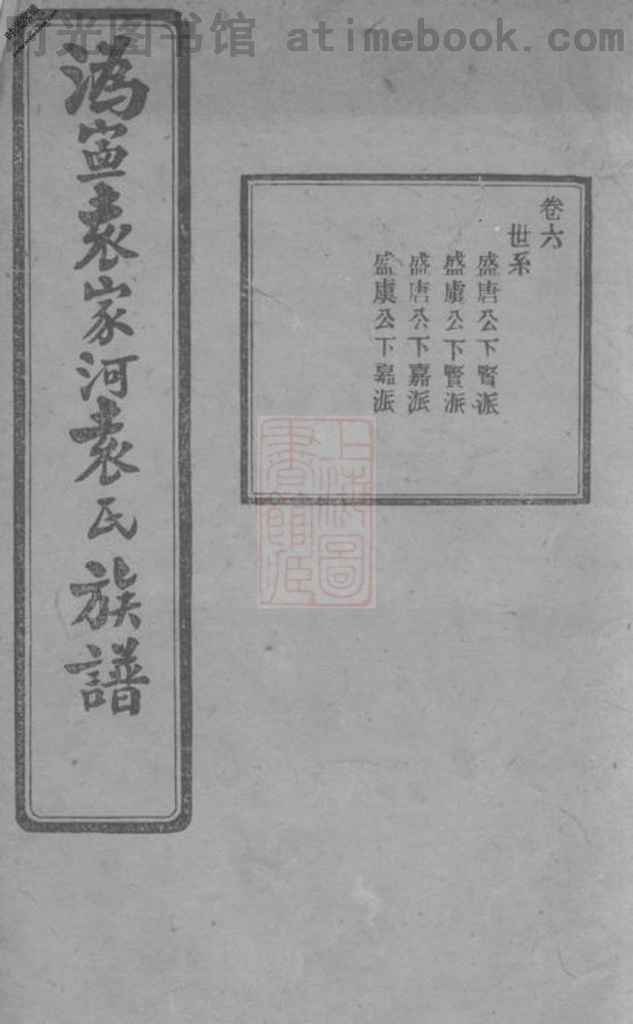 时光图书馆 atimebook.com
溈寍袁家河袁氏族譜
卷六
世系
盛唐公下賢派
盛虞公下賢派
盛唐公下嘉派
盛虞公下嘉派
上海圖
書館藏